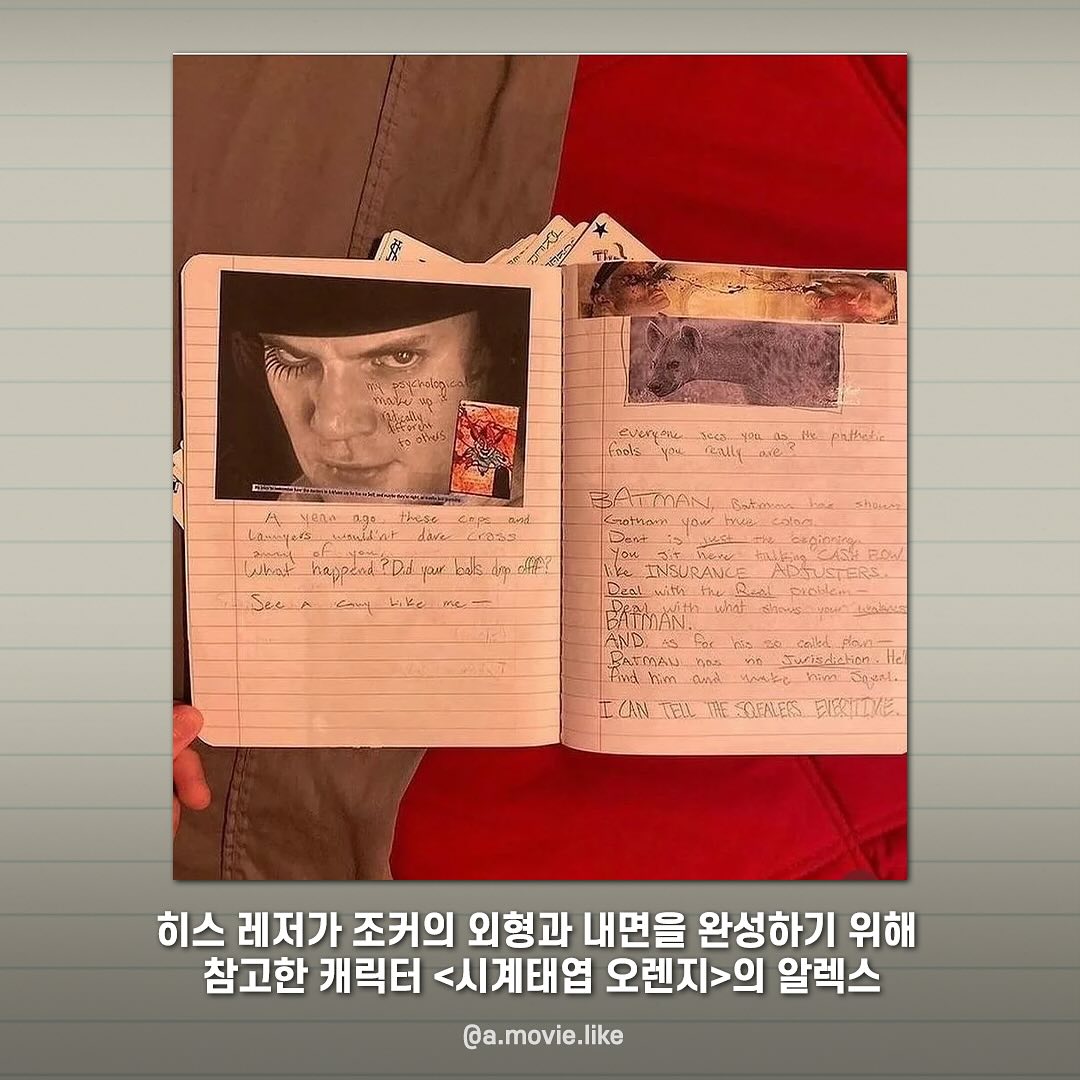 my psychological
make up is
radically
different
to others
A year ago, these cops and
Lawyers wouldn't dare cross
any of you,
What happend? Did your balls drop offff?
See a guy like me —
everyone sees you as the phathetic
fools you really are?
BATMAN, Batman has shown
Gotham your true colors.
Dent is just the beginning.
You sit here talking CASH FLOW
like INSURANCE ADJUSTERS.
Deal with the Real problem —
Deal with what shows your weakness
BATMAN.
AND, as for his so called plan —
BATMAN has no Jurisdiction. He'll
find him and make him Squeal.
I CAN TELL THE SQEALERS EVERTIME.
히스 레저가 조커의 외형과 내면을 완성하기 위해
참고한 캐릭터 <시계태엽 오렌지>의 알렉스
@a.movie.like